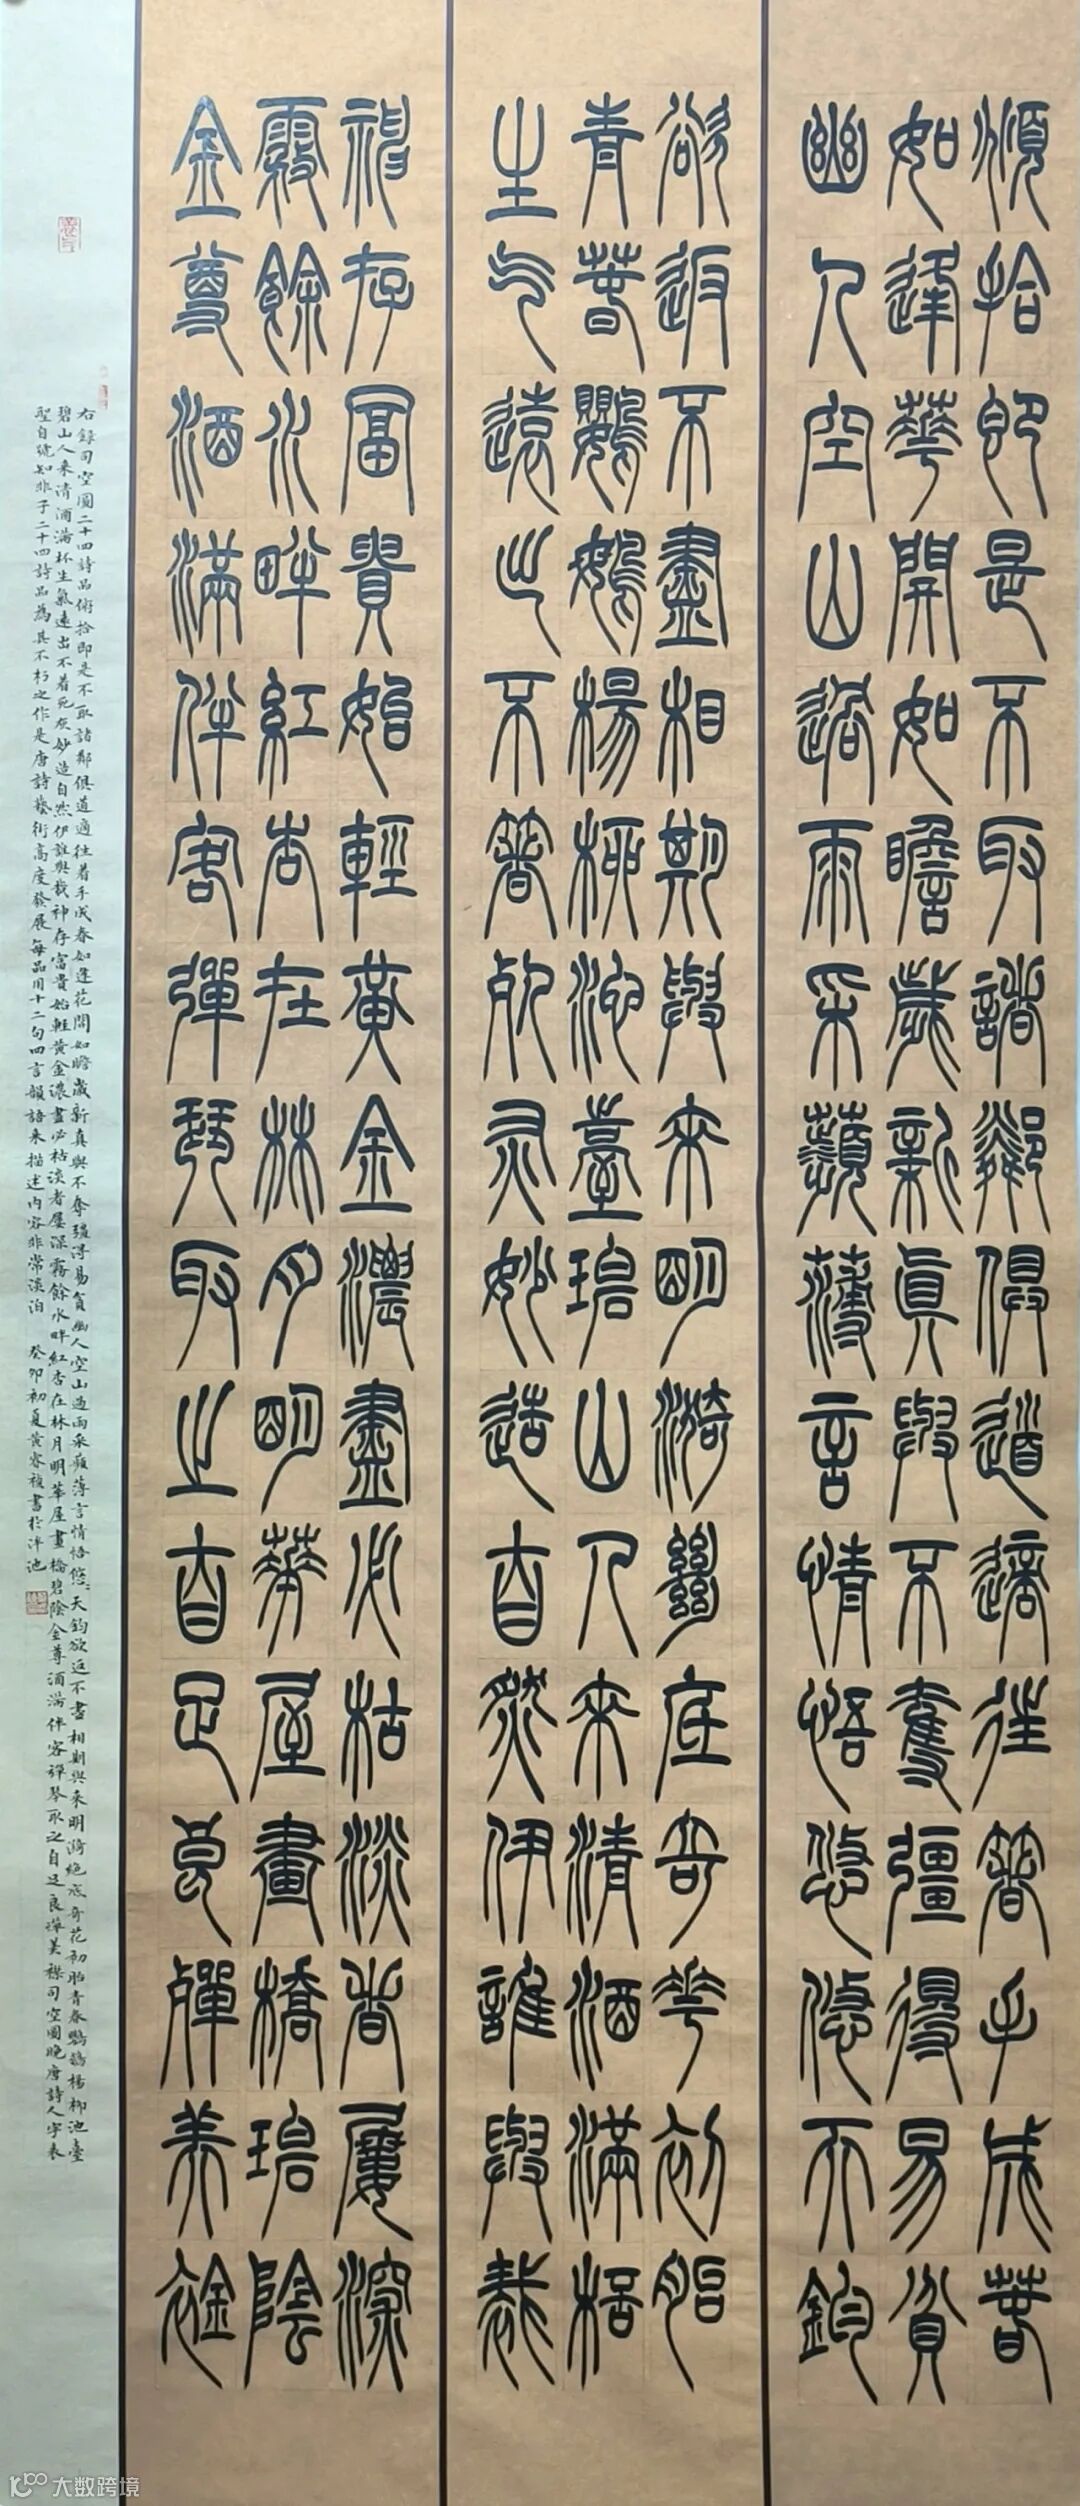 頫拾即是不取諸鄰俱道適往箸手成春
如逢華開如瞻歲新真與不奪彊得易貧
幽人空山過雨采蘋薄言情悟悠悠天鈞
欲返不盡相期與來明漪絕底奇花初胎
青春鸚鵡楊柳池臺碧山人來清酒滿桮
生气遠出不箸死灰妙造自然伊誰與裁
神存富貴始輕黃金濃盡必枯淡者屢深
霧餘水畔紅杏在林月明華屋畫橋碧陰
金尊酒滿伴客彈琴取之自足良殫美襟
右錄司空圖二十四詩品俯拾即是不取諸鄰俱道適往着手成春如逢花開如瞻歲新真與不奪強得易貧幽人空山過雨采蘋薄言情悟悠々天鈞欲返不盡相期與來明漪絕底奇花初胎青春鸚鵡楊柳池臺
碧山人來清酒滿杯生氣遠出不着死灰妙造自然伊誰與裁神存富貴始輕黃金濃盡必枯淡者屢深霧餘水畔紅杏在林月明華屋畫橋碧陰金尊酒滿伴客彈琴取之自足良殫美襟司空圖晚唐詩人字表
聖自號知非子二十四詩品為其不朽之作是唐詩藝術高度發展每品用十二句四言韻語來描述內容非常淡泊 癸卯初夏黃睿禎書於泮池
大数跨境